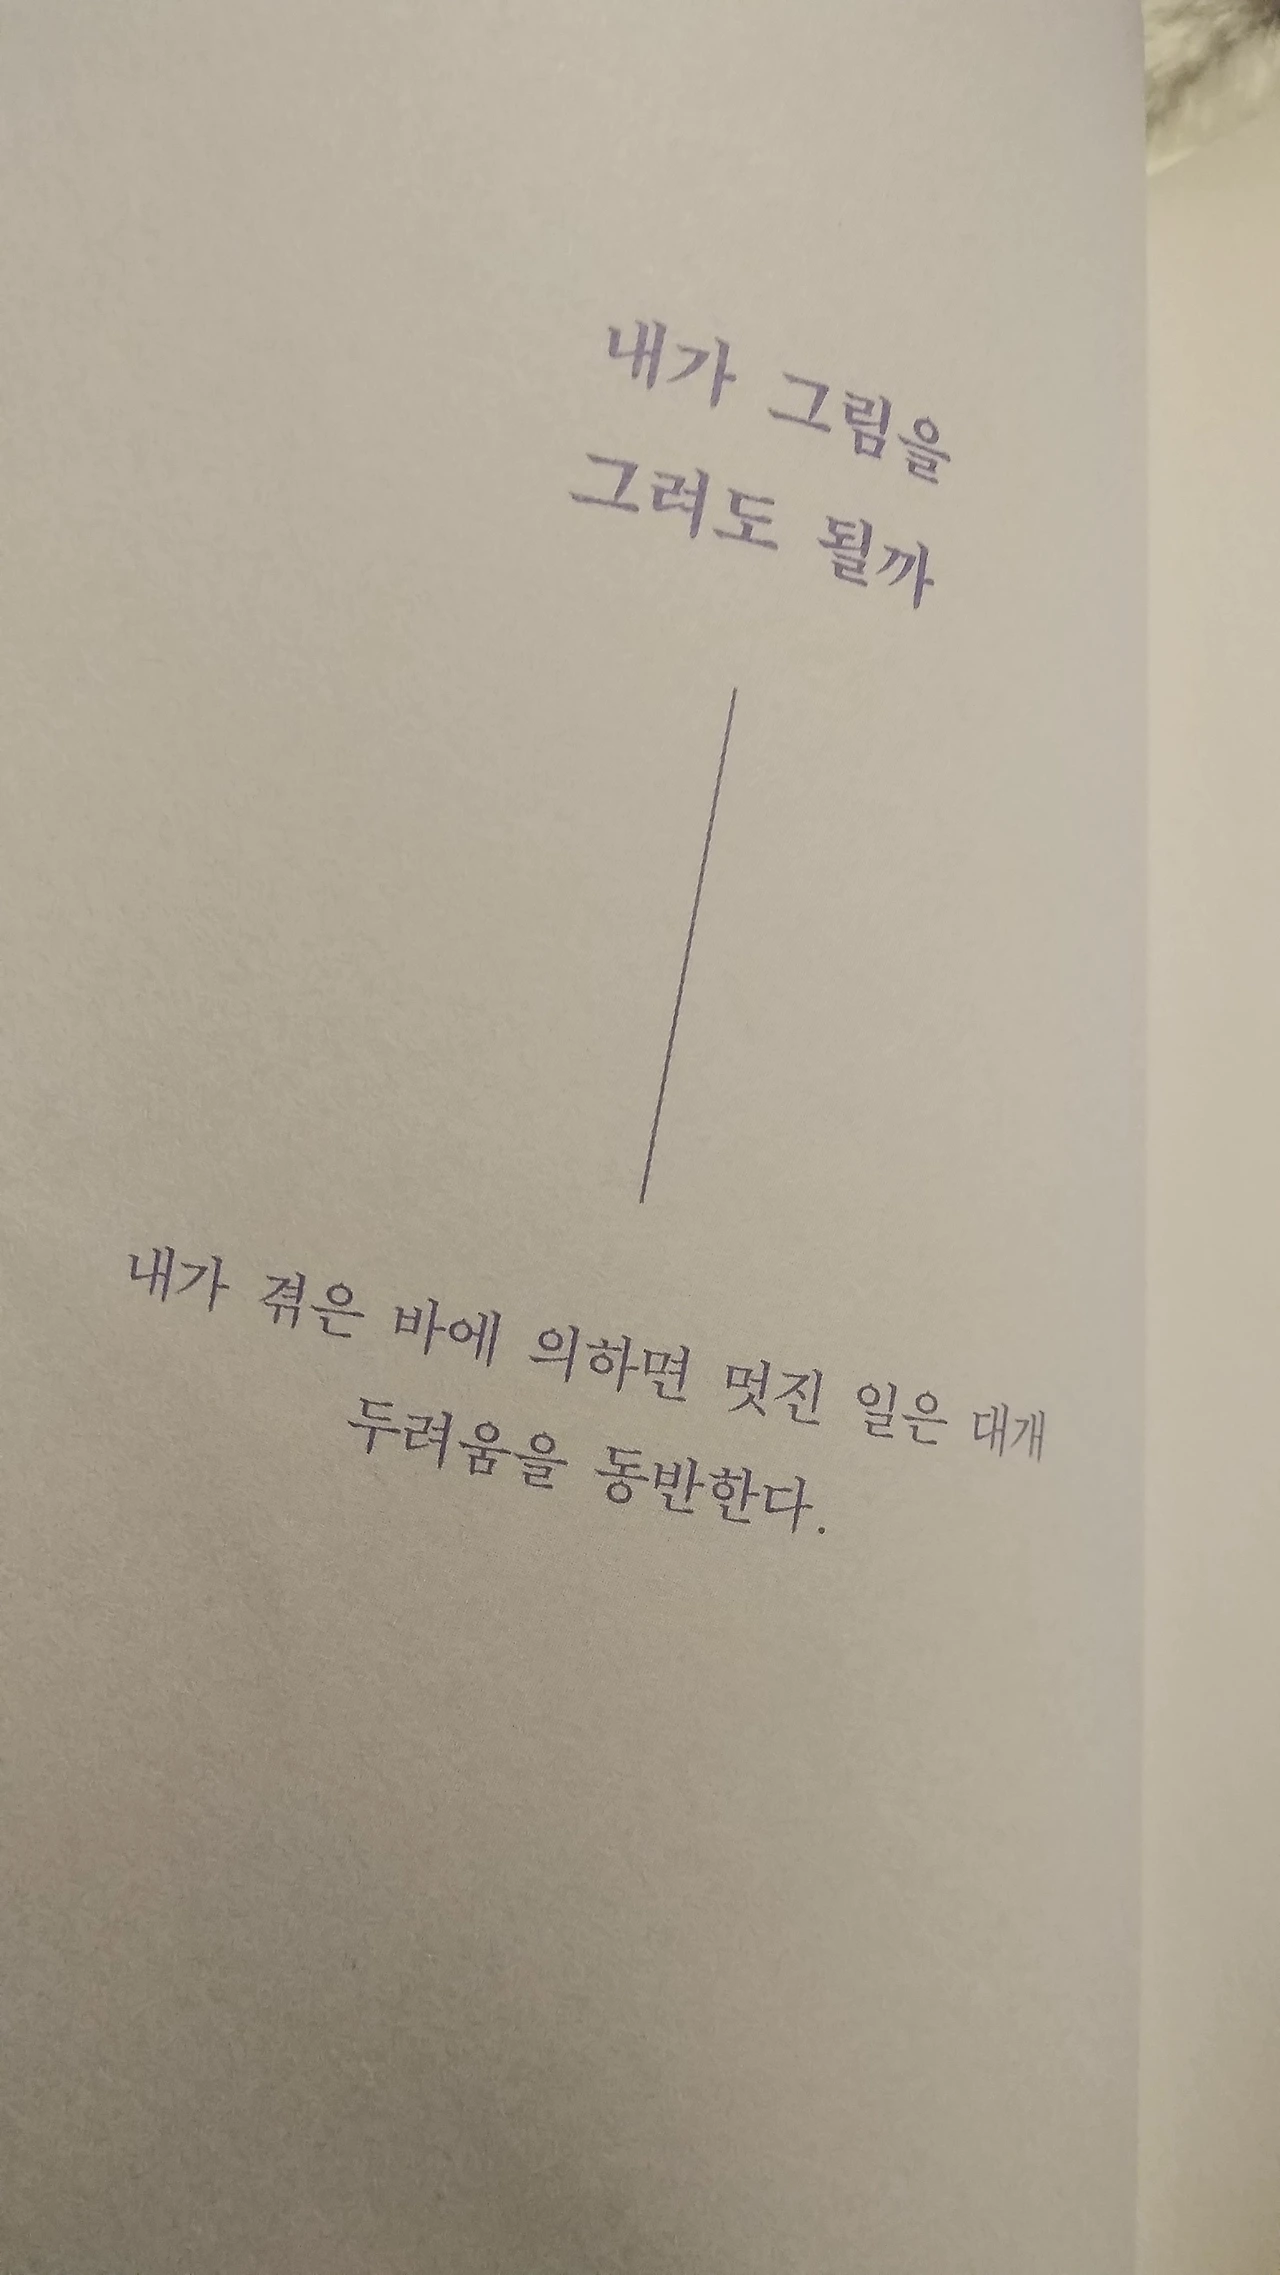 내가 그림을
그려도 될까
내가 겪은 바에 의하면 멋진 일은 대개
두려움을 동반한다.